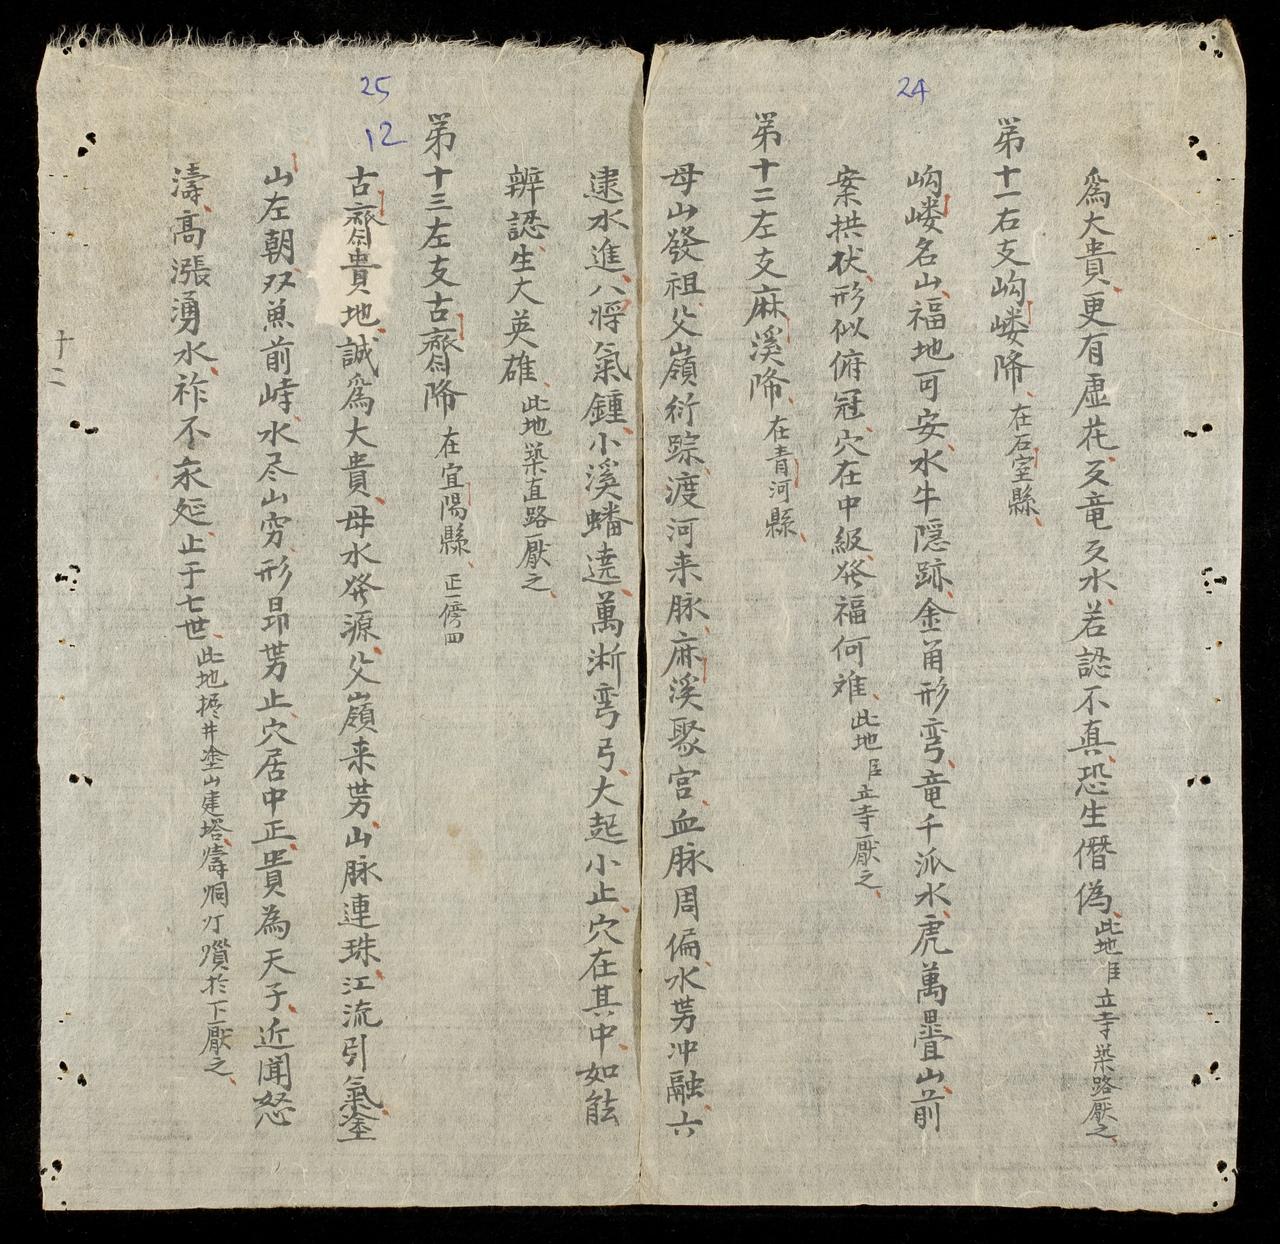 24
爲大貴更有虛花亥竜亥水若認不真恐生僭偽此地 立寺築路厭之
第十一右支岣嶁降在石室縣
岣嶁名山福地可安水牛隠跡金甬形弯竜千派水虎萬疊山前
案拱状形似俯冠穴在中級発福何难此地 立寺厭之
第十二左支麻溪降在青河縣
母山發祖父嶺衍踪渡河来脉麻溪聚宫血脉周偏水势冲融六
建水進八將氣鍾小溪蟠遶萬淅弯弓大起小止穴在其中如能
25
辨認生大英雄此地築直路厭之
第十三左支古齋降在宜陽縣正一傍四
12
古齋貴地誠爲大貴母水発源父嶺来势山脉連珠江流引氣塗
山左朝双魚前峙水尽山穷形昂势止穴居中正貴為天子近聞怒
濤高漲湧水祚不永延止于七世此地 井塗山建塔 炯灯 於下厭之
十二